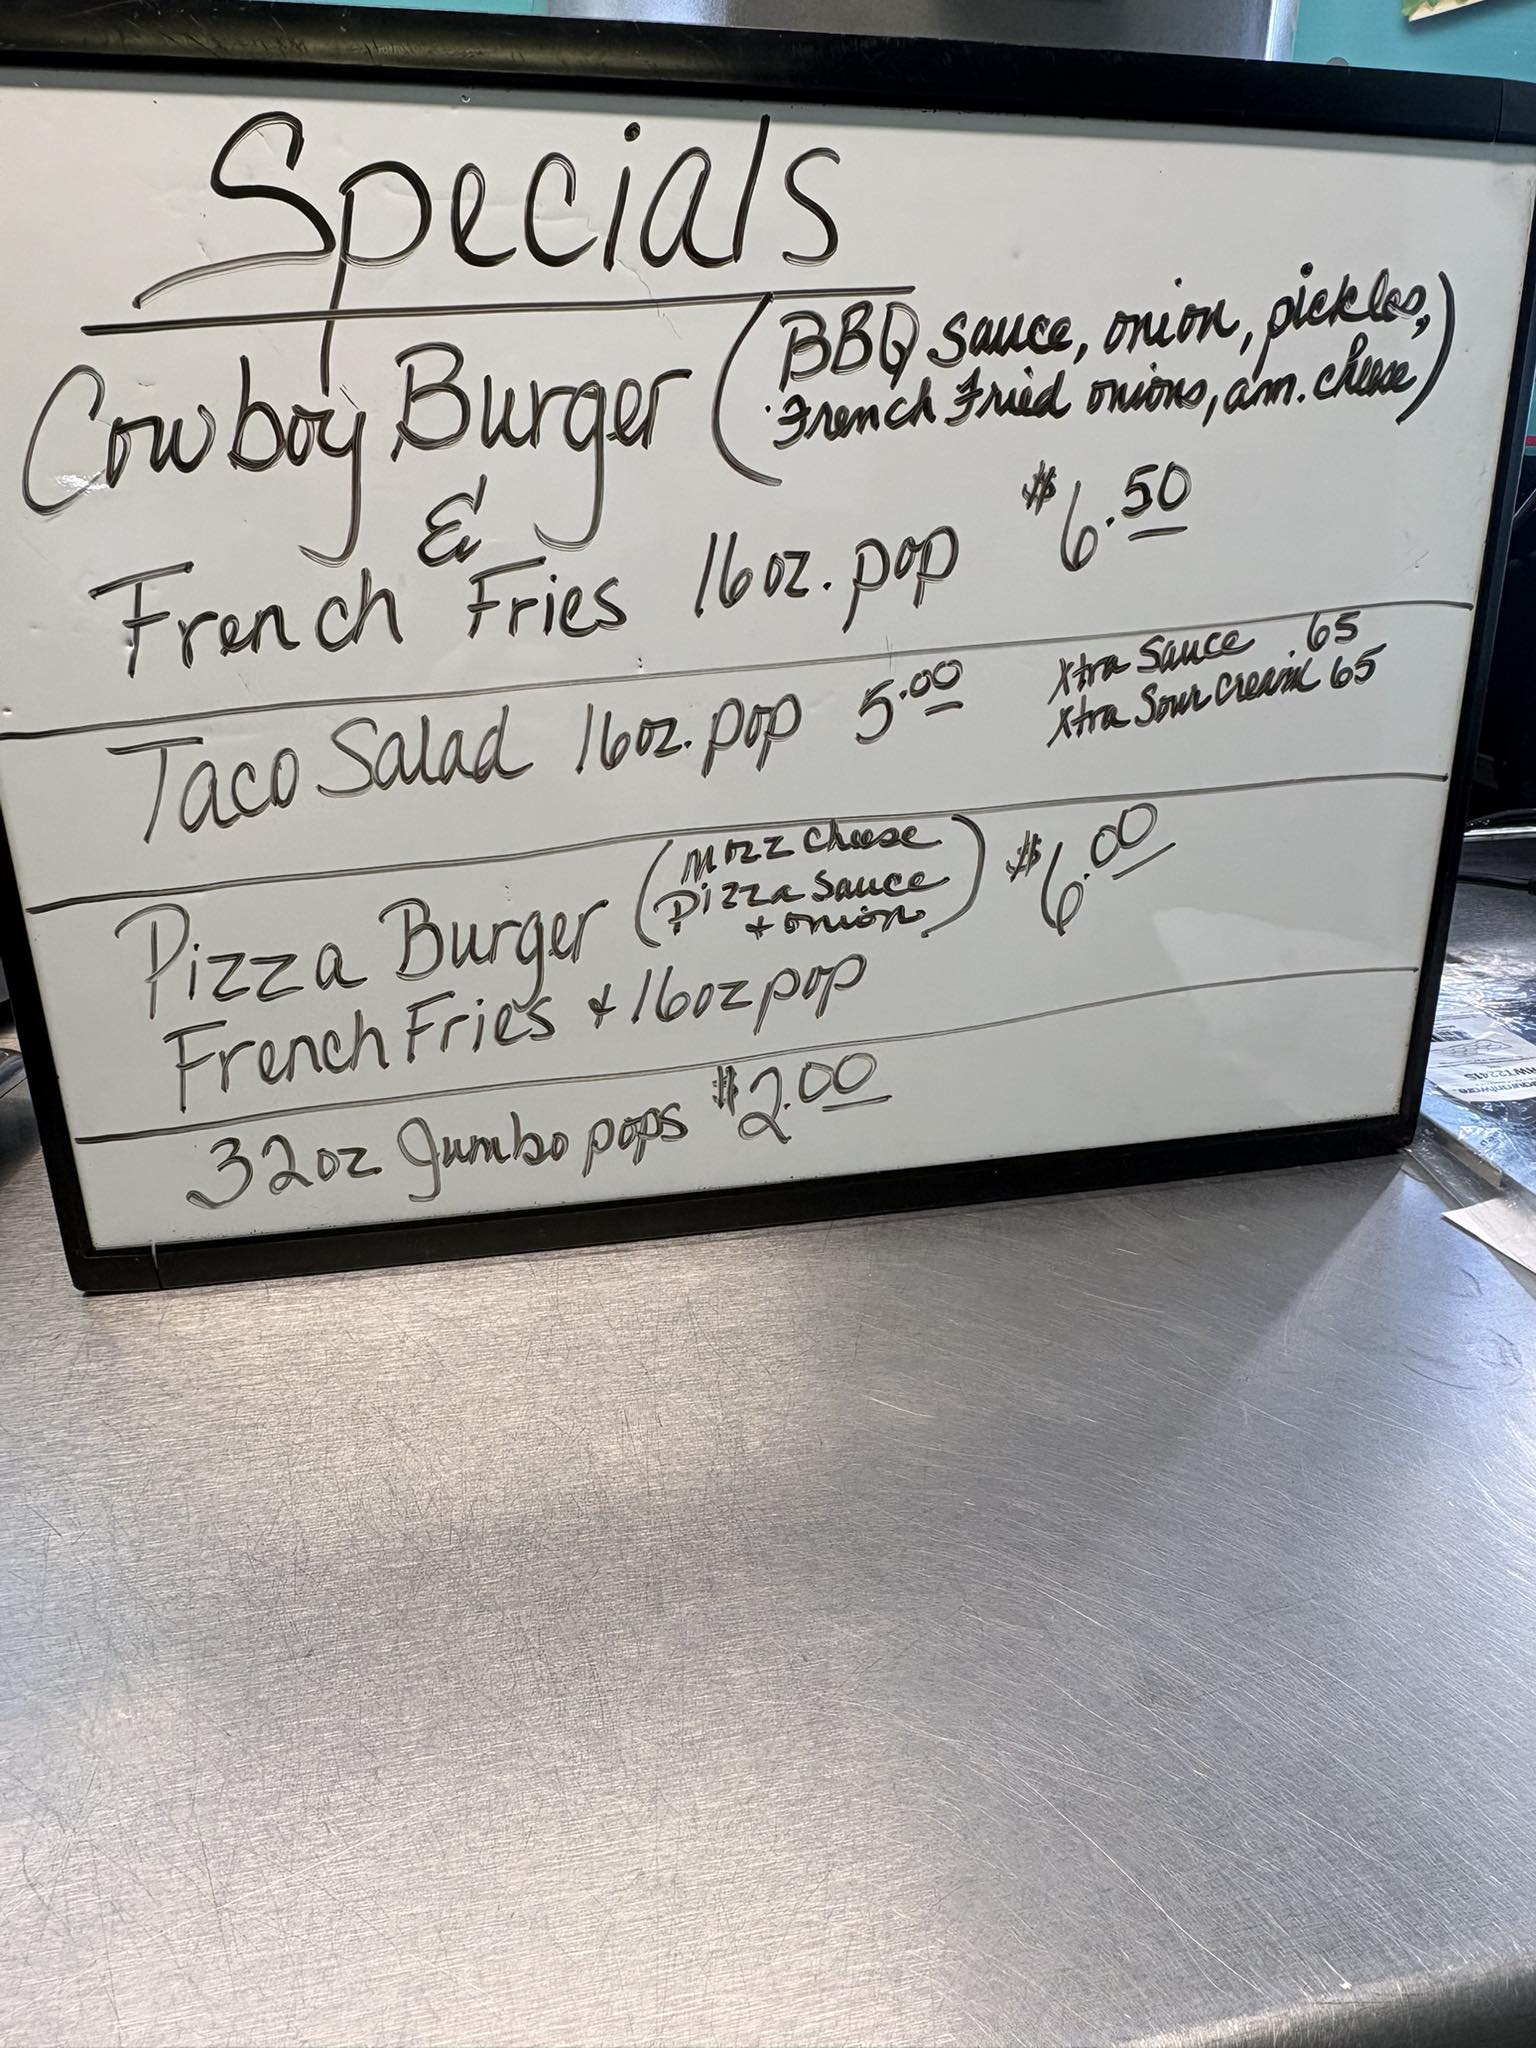 Specials
Cowboy Burger (BBQ Sauce, onion, pickles,
French Fried onions, am. cheese)
&
French Fries 16oz. pop $6.50
Taco Salad 16oz. pop 5.00
Xtra Sauce 65
Xtra Sour Cream 65
Pizza Burger (Mozz Cheese
Pizza Sauce
+ onion) $6.00
French Fries + 16oz pop
32oz Jumbo pops $2.00